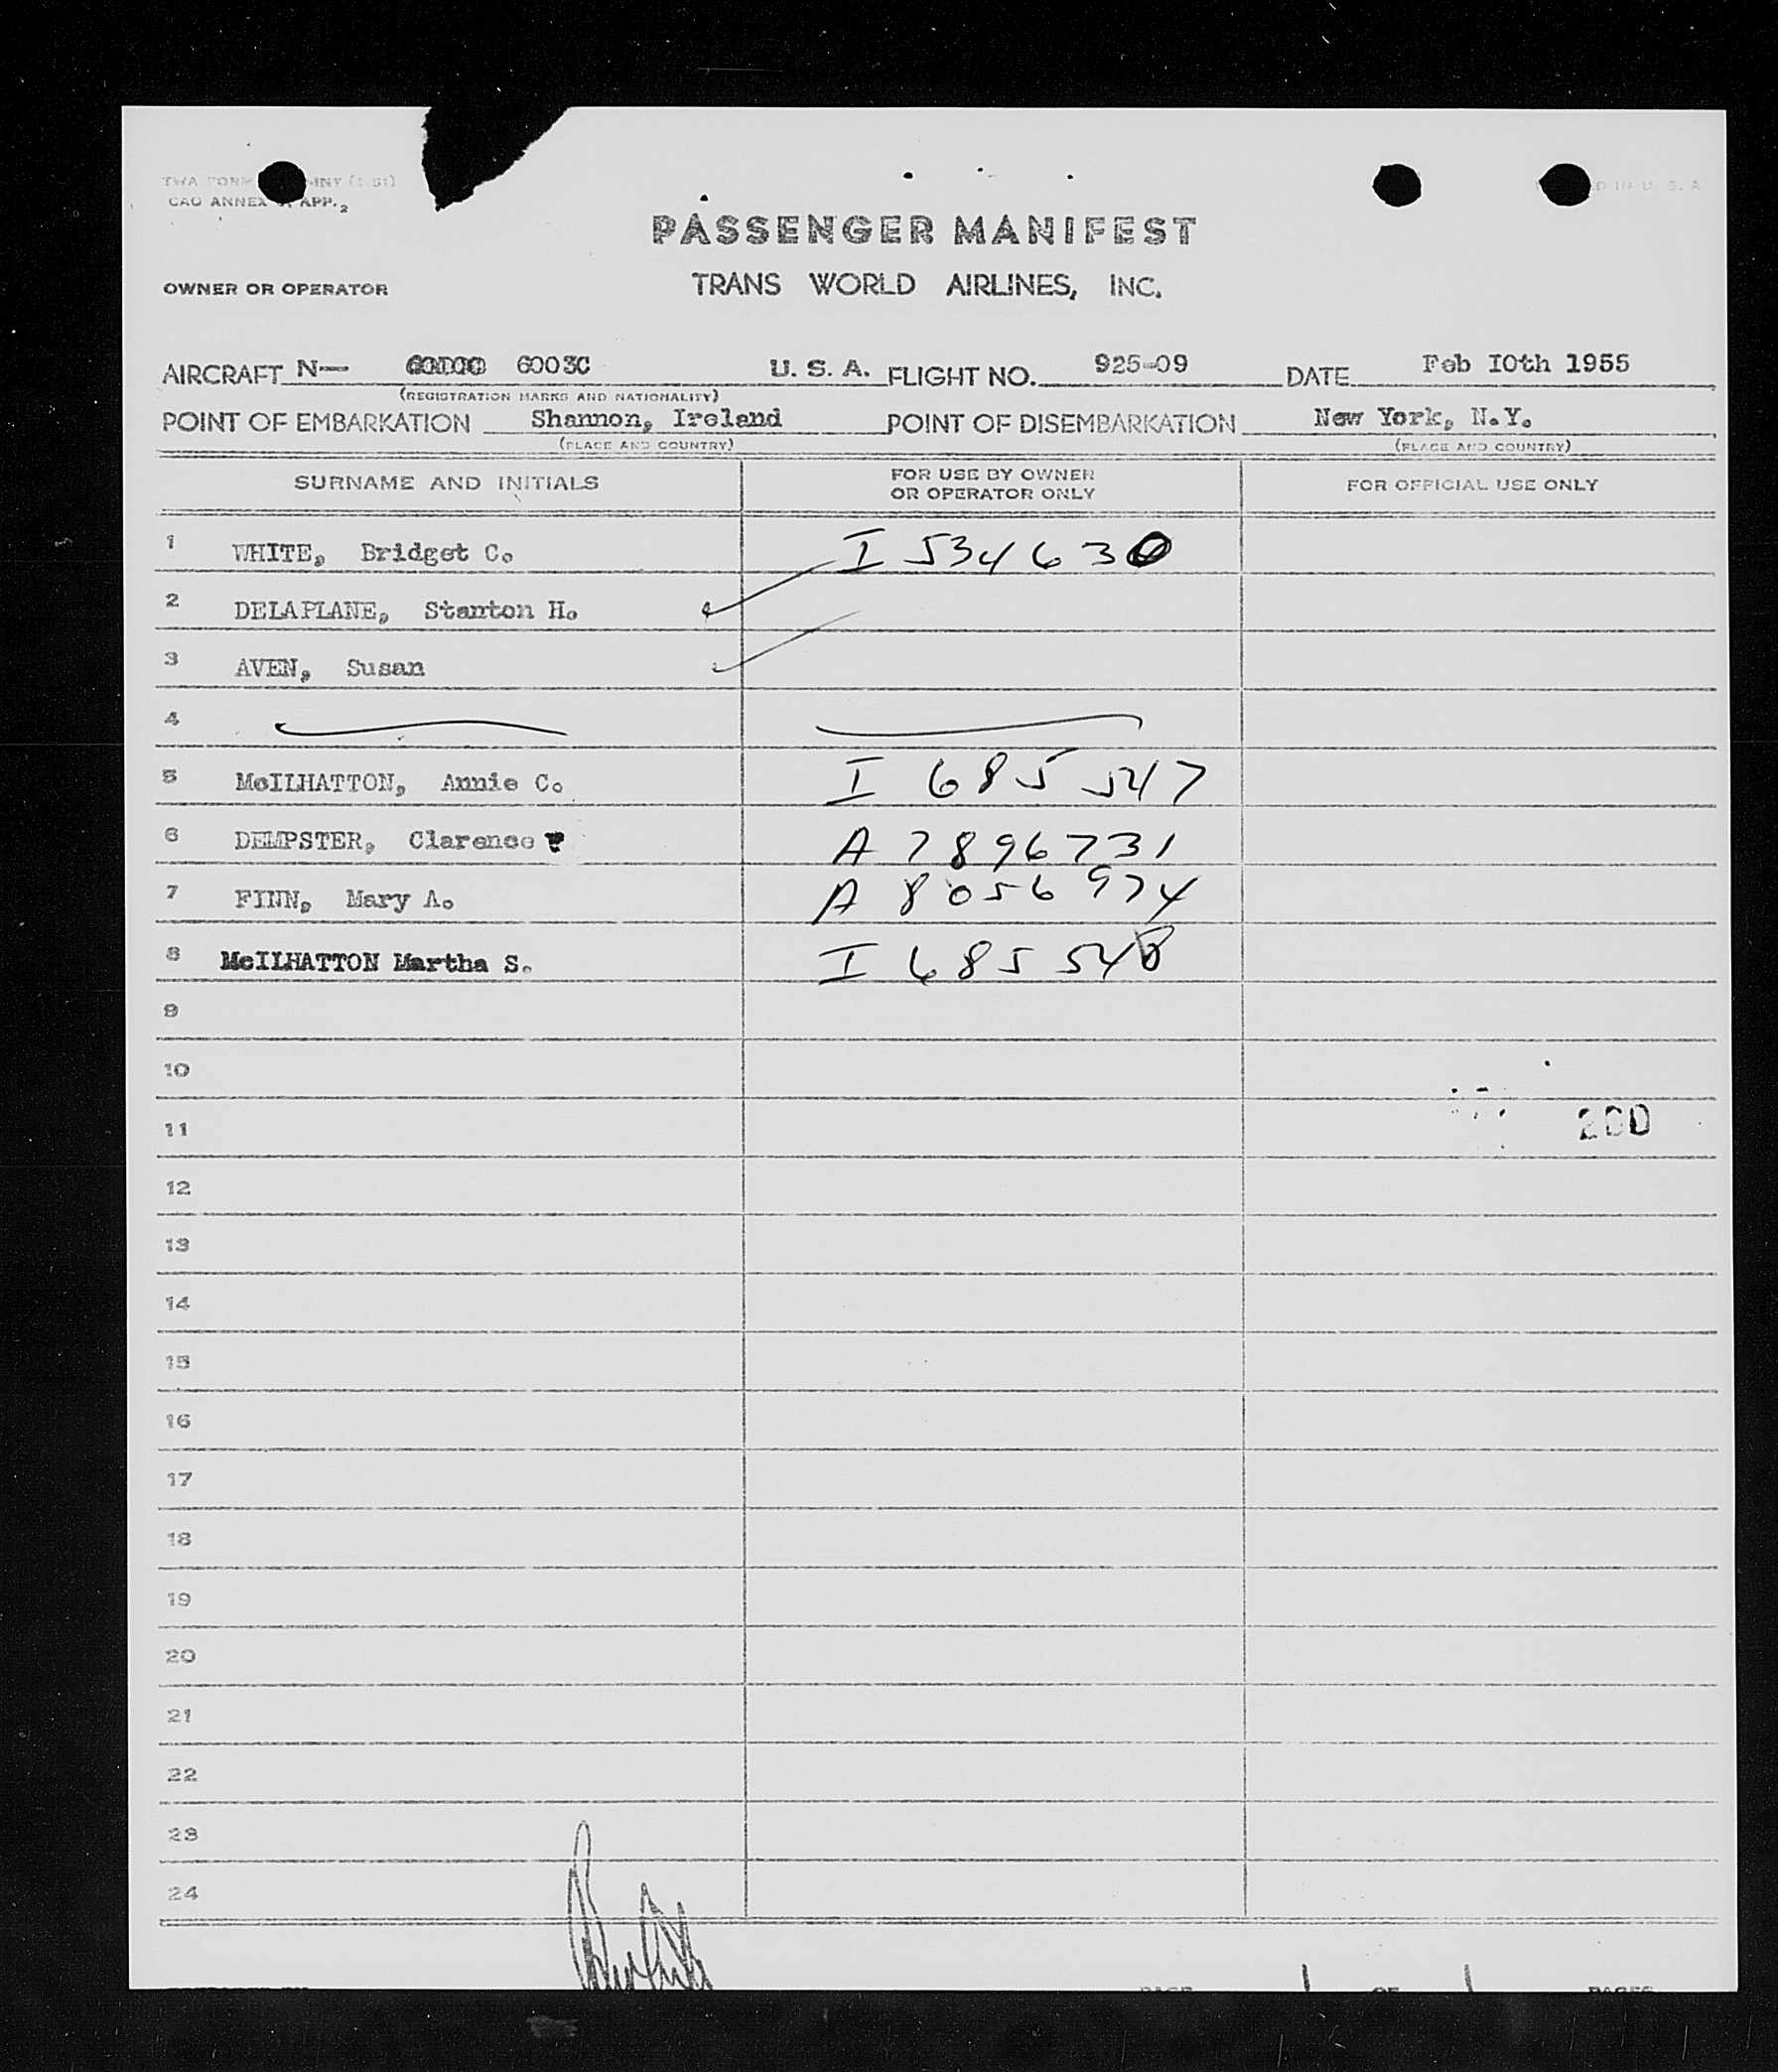 TWA FORM
CAO ANNEX APP. 2
PASSENGER MANIFEST
OWNER OR OPERATOR TRANS WORLD AIRLINES, INC.
AIRCRAFT N— 6003C U. S. A. FLIGHT NO. 925-09 DATE Feb I0th 1955
(REGISTRATION MARKS AND NATIONALITY)
POINT OF EMBARKATION Shannon, Ireland POINT OF DISEMBARKATION New York, N.Y.
(PLACE AND COUNTRY) (PLACE AND COUNTRY)
SURNAME AND INITIALS FOR USE BY OWNER OR OPERATOR ONLY FOR OFFICIAL USE ONLY
1 WHITE, Bridget C. I 534630
2 DELAPLANE, Stanton H.
3 AVEN, Susan
4
5 McILHATTON, Annie C. I 685 547
6 DEMPSTER, Clarence A 7896731
7 FINN, Mary A. A 8056974
8 McILHATTON Martha S. I 685 548
9
10
11 200
12
13
14
15
16
17
18
19
20
21
22
23
24
PAGE 1 OF 1 PAGES